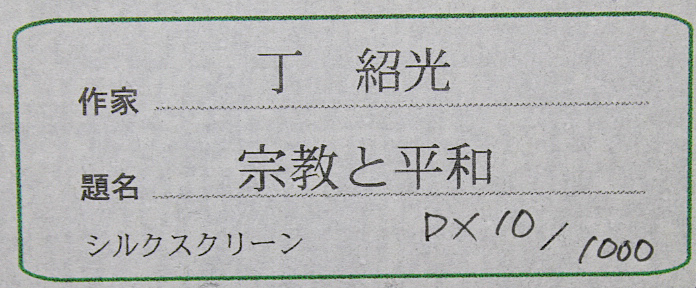 作家 丁 紹光
題名 宗教と平和
シルクスクリーン DX10/1000